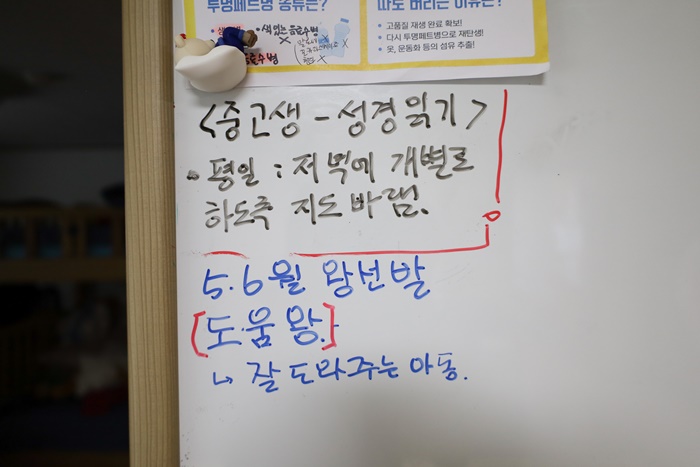 투명페트병 종류는?
따로 버리는 이유는?
색있는 음료수병
• 고품질 재생 원료 확보!
• 다시 투명페트병으로 재탄생!
• 옷, 운동화 등의 섬유 추출!
<중고생 - 성경읽기>
• 평일 : 저녁에 개별로
하도록 지도 바람.
5.6월 왕선발
[도움왕]
↳ 잘 도와주는 아동.